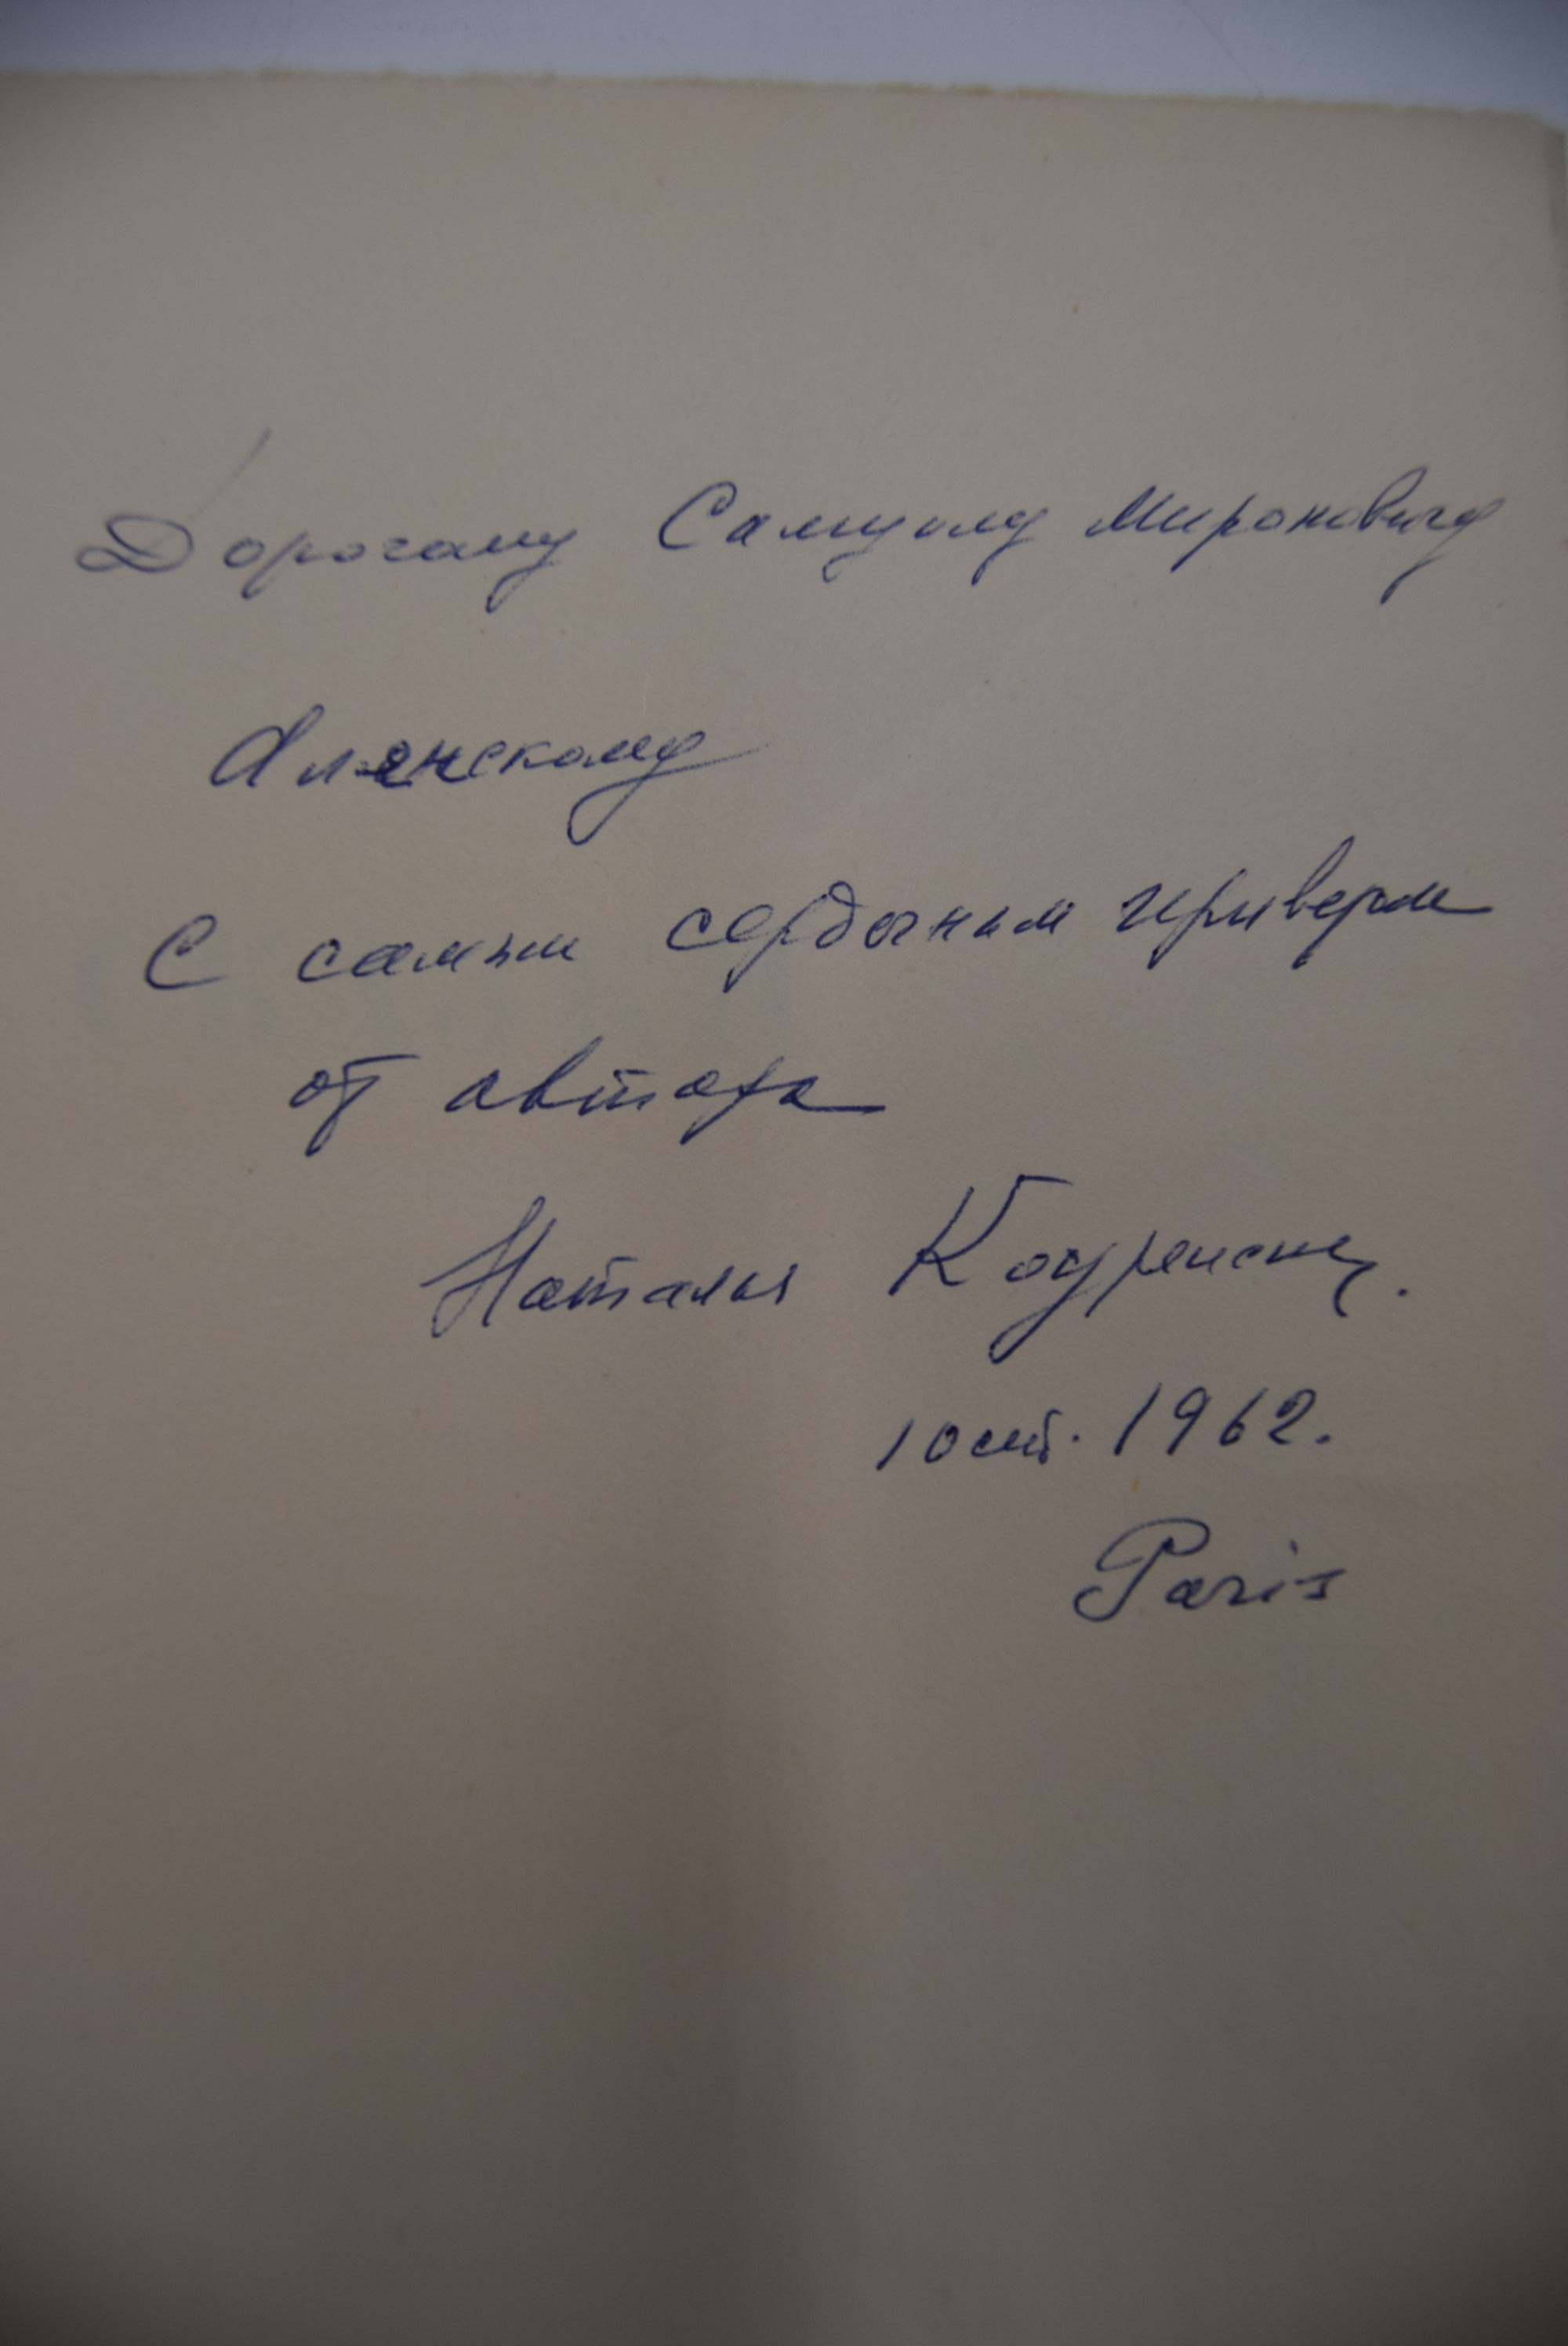 Дорогому Самуилу Мироновичу
Алянскому
С самым сердечным приветом
от автора
Наталья
1 окт. 1962.
Paris